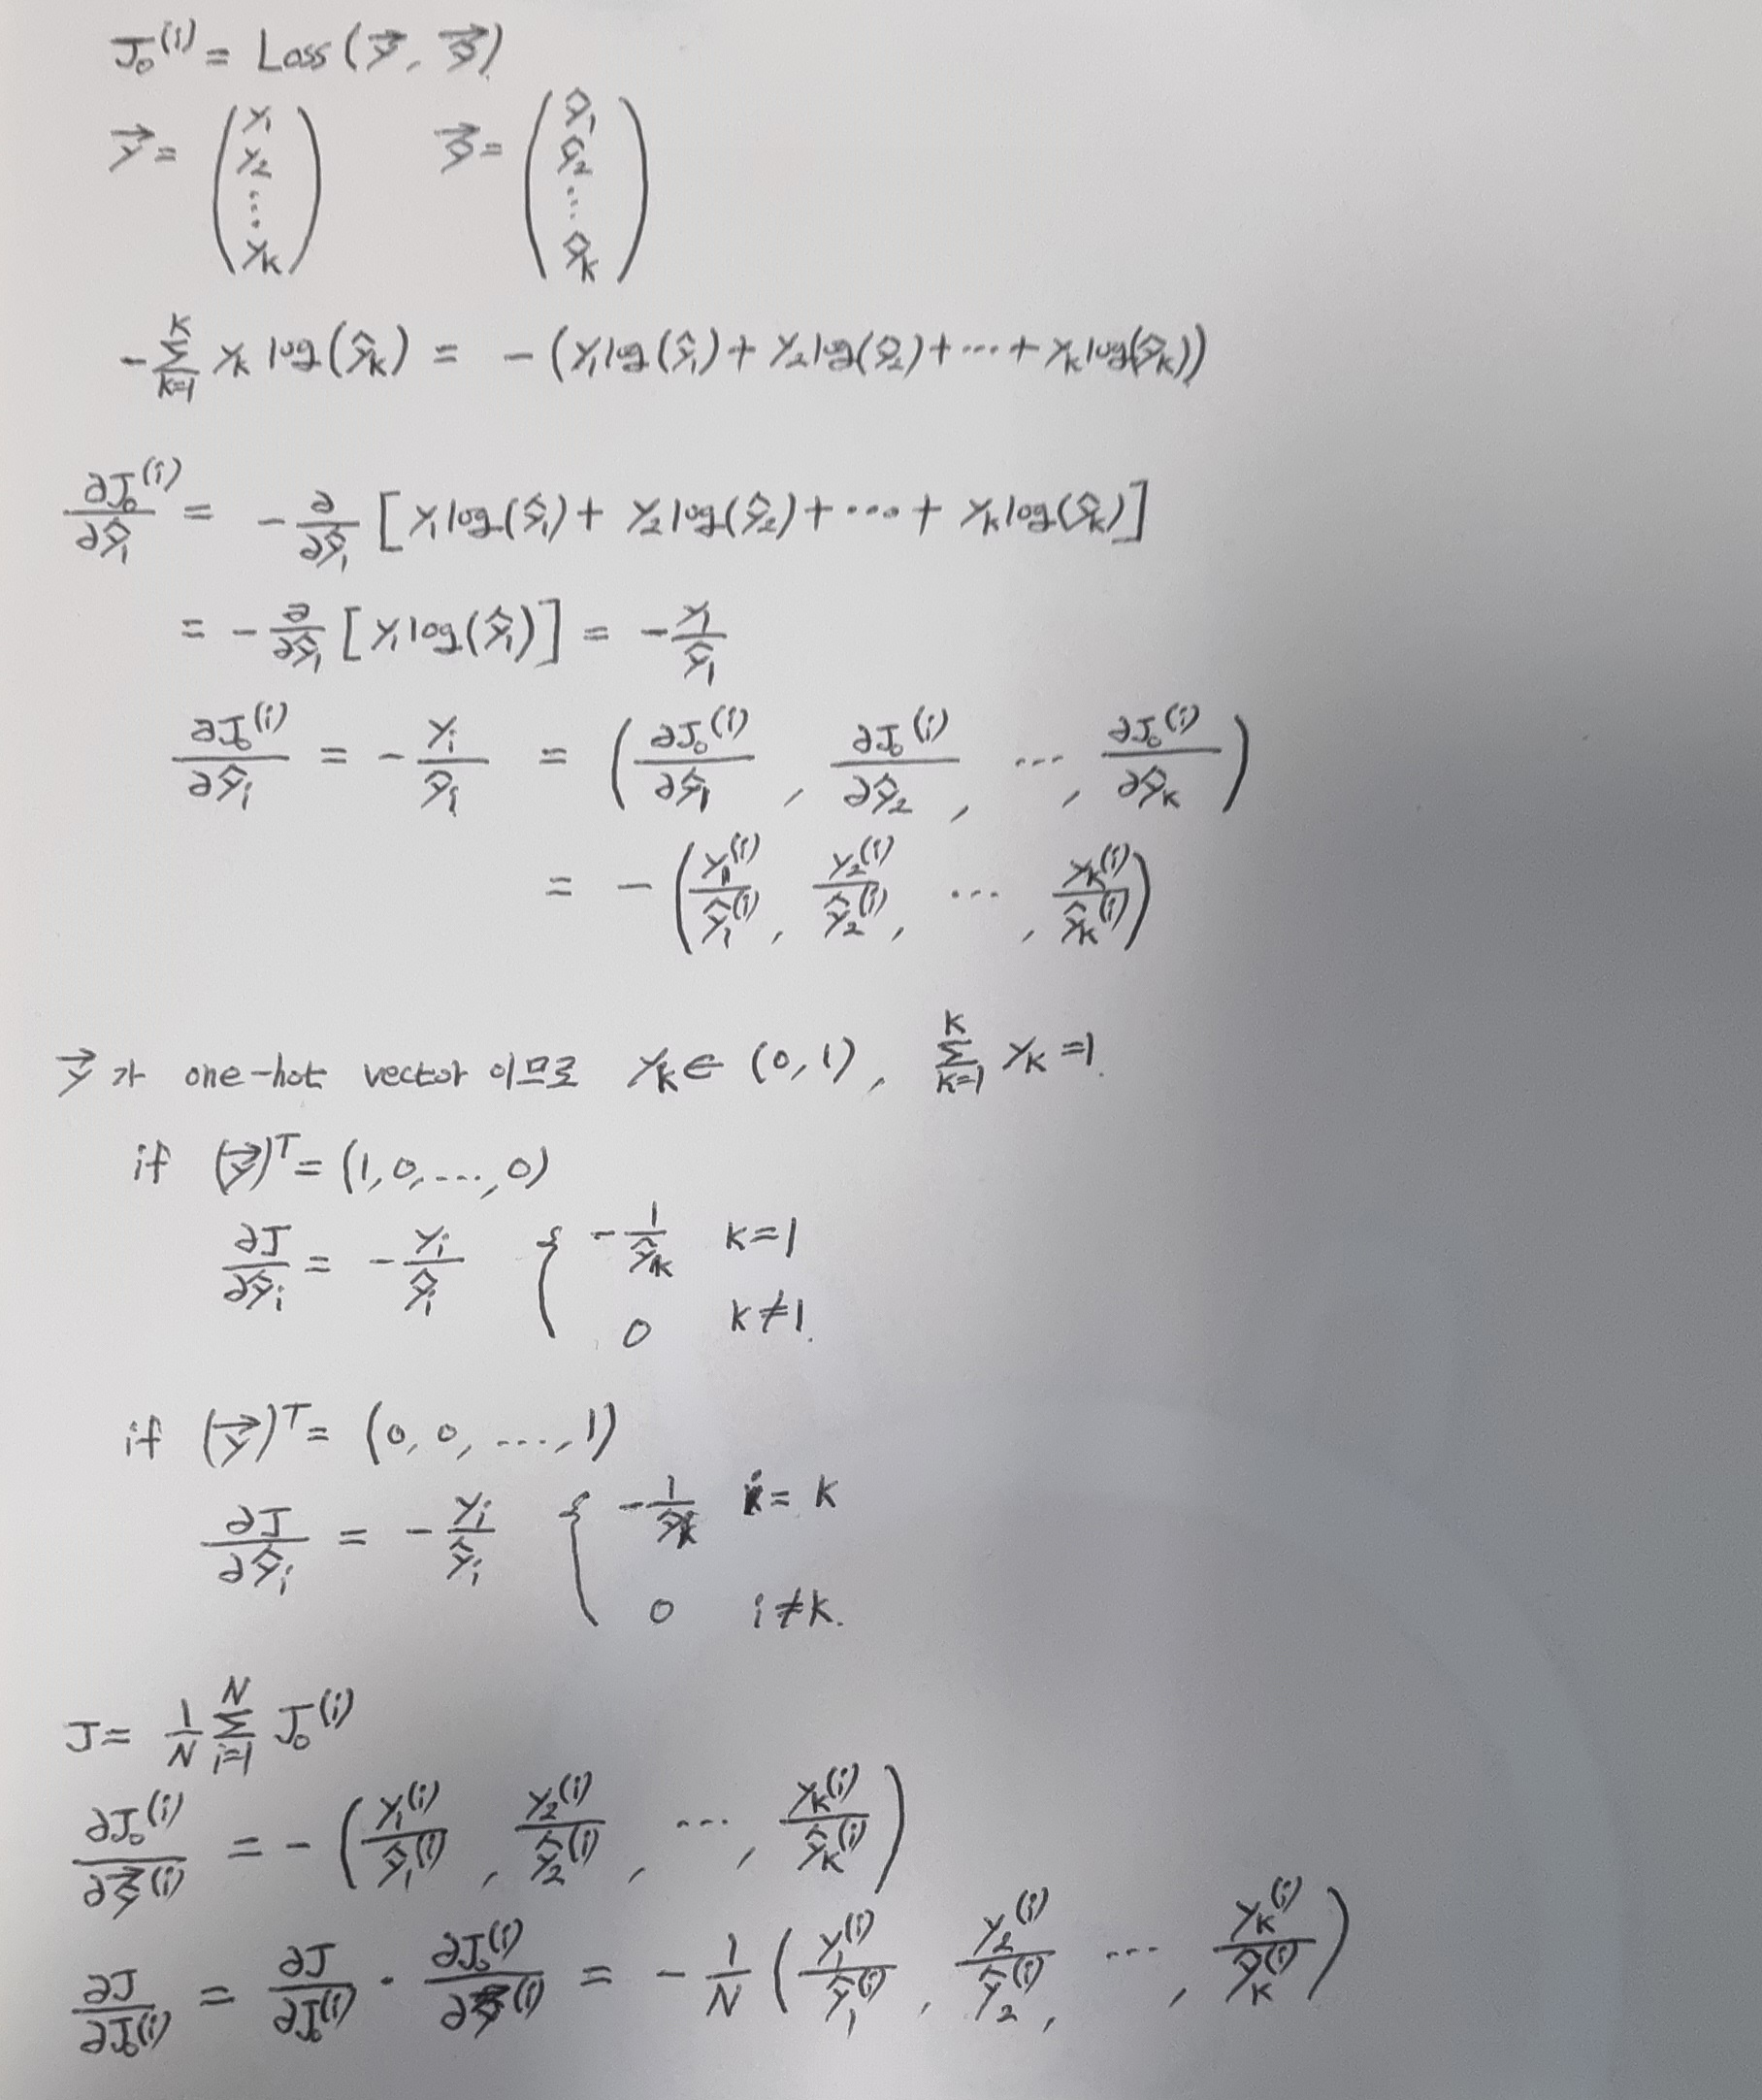 J₀⁽ⁱ⁾ = Loss(y⃗, ŷ⃗)
y⃗ = (y₁ y₂ ... y_K) ŷ⃗ = (ŷ₁ ŷ₂ ... ŷ_K)
-∑_{k=1}^{K} y_k log(ŷ_k) = -(y₁log(ŷ₁) + y₂log(ŷ₂) + ... + y_K log(ŷ_K))
∂J₀⁽ⁱ⁾/∂ŷ₁ = -∂/∂ŷ₁ [y₁log(ŷ₁) + y₂log(ŷ₂) + ... + y_K log(ŷ_K)]
= -∂/∂ŷ₁ [y₁log(ŷ₁)] = -y₁/ŷ₁
∂J₀⁽ⁱ⁾/∂ŷᵢ = -yᵢ/ŷᵢ = (∂J₀⁽ⁱ⁾/∂ŷ₁, ∂J₀⁽ⁱ⁾/∂ŷ₂, ..., ∂J₀⁽ⁱ⁾/∂ŷ_K)
= -(y₁⁽ⁱ⁾/ŷ₁⁽ⁱ⁾, y₂⁽ⁱ⁾/ŷ₂⁽ⁱ⁾, ..., y_K⁽ⁱ⁾/ŷ_K⁽ⁱ⁾)
y⃗가 one-hot vector 이므로 y_k ∈ (0, 1), ∑_{k=1}^{K} y_k = 1.
if (y⃗)ᵀ = (1, 0, ..., 0)
∂J/∂ŷᵢ = -yᵢ/ŷᵢ { -1/ŷ_k k=1
0 k≠1.
if (y⃗)ᵀ = (0, 0, ..., 1)
∂J/∂ŷᵢ = -yᵢ/ŷᵢ { -1/ŷ_k i = k
0 i≠k.
J = 1/N ∑_{i=1}^{N} J₀⁽ⁱ⁾
∂J₀⁽ⁱ⁾/∂ŷ⃗⁽ⁱ⁾ = -(y₁⁽ⁱ⁾/ŷ₁⁽ⁱ⁾, y₂⁽ⁱ⁾/ŷ₂⁽ⁱ⁾, ..., y_K⁽ⁱ⁾/ŷ_K⁽ⁱ⁾)
∂J/∂J₀⁽ⁱ⁾ = ∂J/∂J₀⁽ⁱ⁾ · ∂J₀⁽ⁱ⁾/∂ŷ⃗⁽ⁱ⁾ = -1/N (y₁⁽ⁱ⁾/ŷ₁⁽ⁱ⁾, y₂⁽ⁱ⁾/ŷ₂⁽ⁱ⁾, ..., y_K⁽ⁱ⁾/ŷ_K⁽ⁱ⁾)